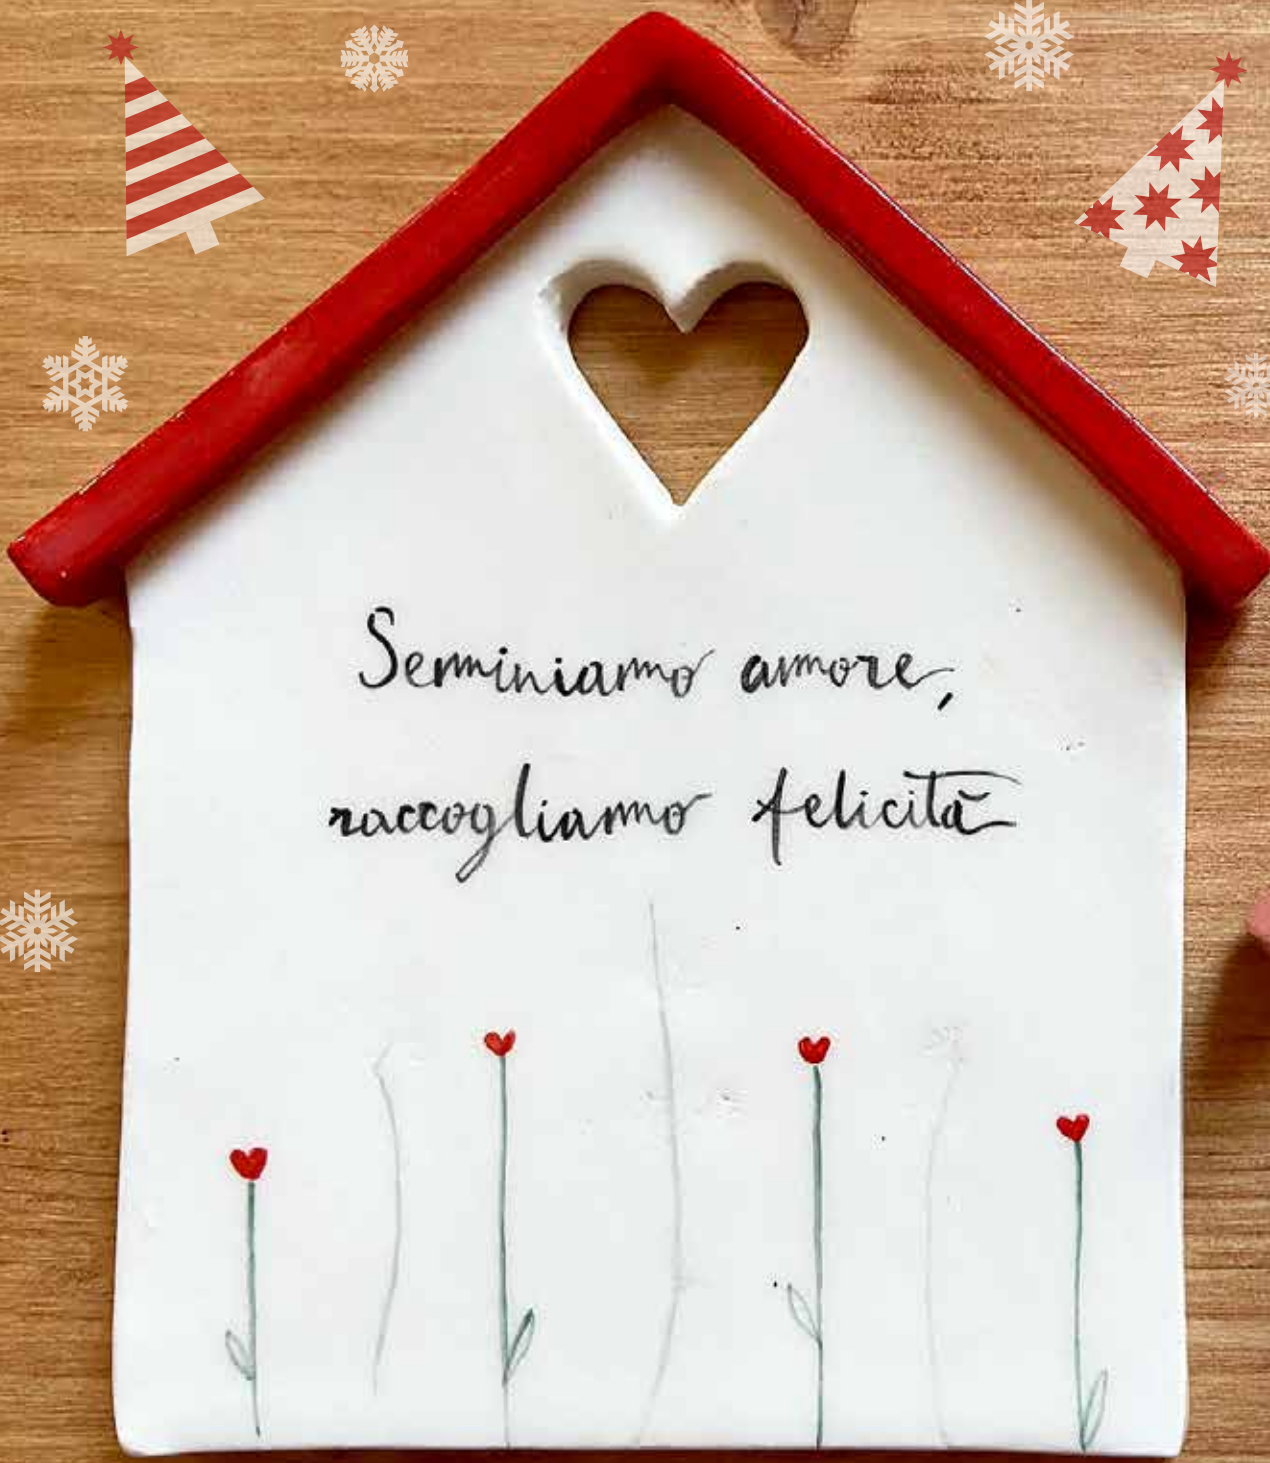 Seminiamo amore,
raccogliamo felicità